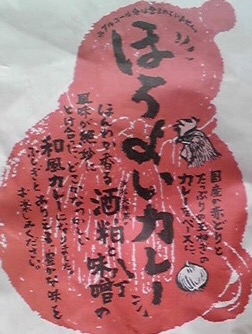 ※アルコール分は含まれていません。
ほろよいカレー
国産の赤どりと
たっぷりの玉ねぎの
カレーをベースに
ほんわか香る
酒粕と八丁味噌の
風味が絶妙に
とけ合い
和風カレーになりました。
ふしぎと
豊かな味を
お楽しみください。